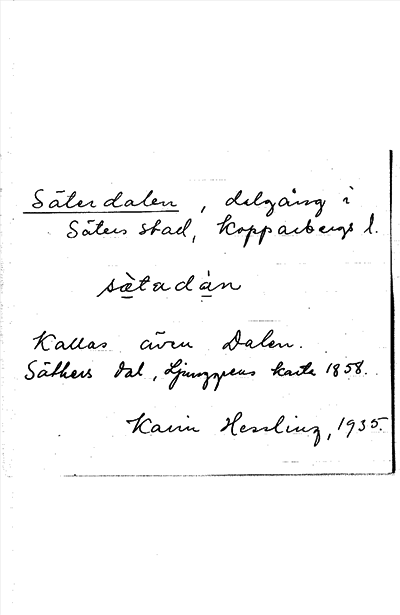 Säterdalen, dalgång i
Säters stad, Kopparbergs l.
sä̀tadàn
Kallas även Dalen.
Säthers Dal, Ljunggrens karta 1858.
Karin Hessling, 1935.